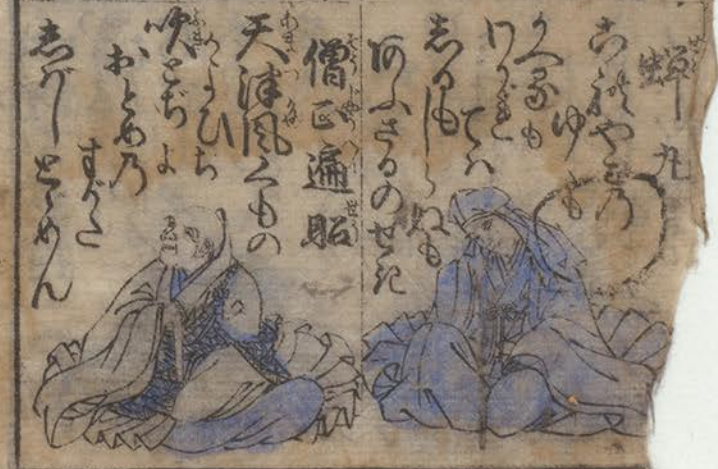 蝉丸
これやこの
ゆくも
かへるも
わかれ
ては
しるもしらぬも
あふさかのせき
僧正遍昭
天津風くもの
かよひぢ
吹とぢよ
おとめの
すがた
しばしとゞめん